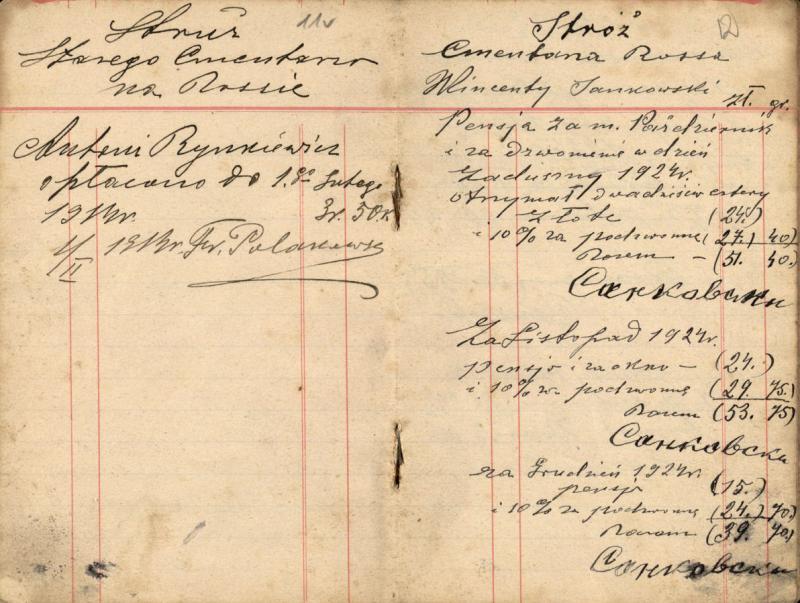 11v
Struż
Starego Cmentarza
na Rossie
Antoni Rynkiewicz
opłacono do 1.go lutego
191 r. 3 r. 50 k
4/II 191 r. Fr. Polakowski
12
Stróż
Cmentarza Rossa
Wincenty Sankowski
zł. gr.
Pensja za m. Październik
i za dzwonienie w dzień
Zaduszny 1924r.
otrzymał dwadzieścia cztery
Złote (24.)
i 10% za podzwonne (27.) 40)
Razem – (51. 40.)
Санковски
Za Listopad 1924r.
pensja i za okno – (24.)
i 10% za podzwonne (29. 75.)
Razem (53. 75)
Санковски
za Grudzień 1924r.
pensja (15.)
i 10% za podzwonne (24.) 70.)
Razem (39. 70.)
Санковски